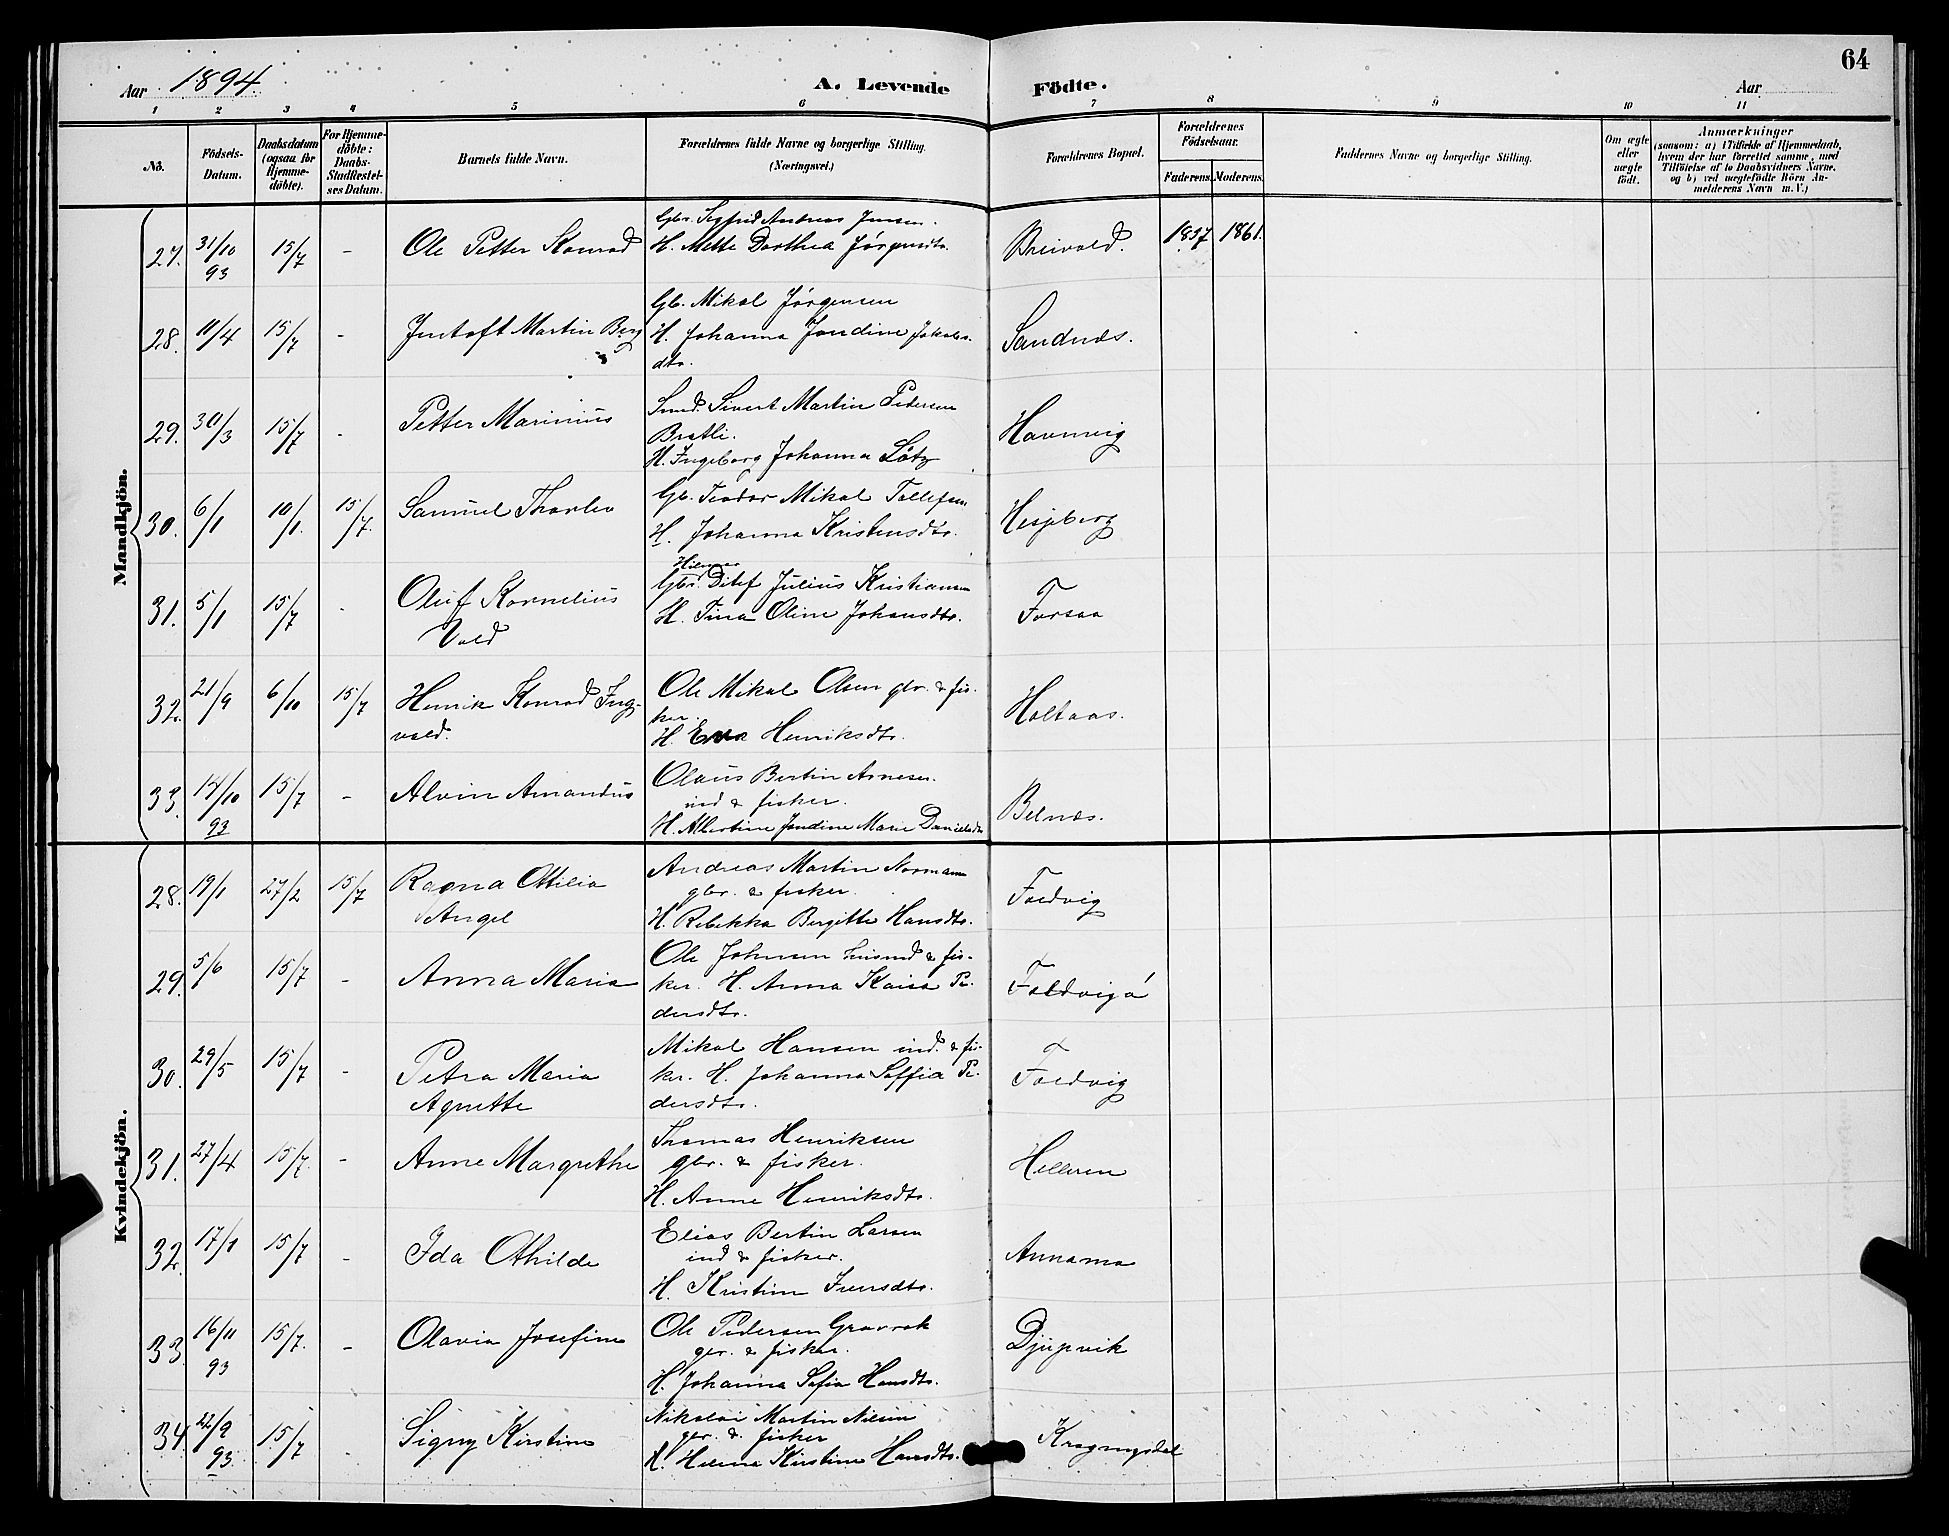 64
Aar 1894. A. Levende Födte. Aar
1 2 3 4 5 6 7 8 9 10 11
Nö.
Födsels-Datum.
Daabsdatum (ogsaa for Hjemmedöbte).
For Hjemmedöbte: Daabs-Stadfæstelses Datum.
Barnets fulde Navn.
Forældrenes fulde Navne og borgerlige Stilling. (Næringsvei.)
Forældrenes Bopæl.
Forældrenes Födselsaar.
Faderens. Moderens.
Faddernes Navne og borgerlige Stilling.
Om ægte eller uægte födt.
Anmærkninger
(saasom: a) i Tilfælde af Hjemmedaab,
hvem der har forrettet samme, med
Tilföielse af to Daabsvidners Navne,
og b) ved uægtefödte Börn An-
melderens Navn m. V.)
Mandkjön.
27. 31/10 93 15/7 - Ole Petter Konrad
Gbr. Sigfrid Andreas Jensen.
H. Mette Dorthea Jörgensdtr.
Breivold. 1837 1861.
28. 11/4 15/7 - Jentoft Martin Berg
Gb. Mikal Jörgensen
H. Johanna Jondine Jakobs-
dtr.
Sandnes.
29. 30/3 15/7 - Petter Marinius
Smed. Sivert Martin Pedersen
Bratli.
H. Ingeborg Johanna Lötz
Havnvig
30. 6/1 10/1. 15/7. Samuel Thorlev
Gb. Teodor Mikal Tollefsen
H. Johanna Kristensdtr.
Hesjeberg
31. 5/1 15/7 - Oluf Kornelius
Vald
Hilmar
Gbr. Ditlef Julius Kristiansen
H. Tina Oline Johansdtr.
Forsaa
32. 21/9 6/10 15/7 Henrik Konrad Ing-
vald.
Ole Mikal Olsen gbr. & fis-
ker.
H. Eva Henriksdtr.
Holtaas.
33. 14/10 93 15/7 - Alvin Amandus
Olaus Bertin Arnesen.
ind & fisker.
H. Albertine Jondine Marie Danielsdtr
Belnes.
Kvindekjön.
28. 19/1 27/2 15/7 Ragna Otilia
Angel
Andreas Martin Normann
gbr. & fisker.
H. Rebekka Bergitte Hansdtr.
Foldvig
29. 5/6 15/7 - Anna Maria
Ole Johnsen husmd & fis-
ker. H. Anna Kaisa Pe-
dersdtr.
Foldvigö
30. 29/5 15/7 - Petra Maria
Agnette
Mikal Hansen ind. & fis-
ker. H. Johanna Soffia Pe-
dersdtr.
Foldvig
31. 27/4 15/7. - Anne Margrethe
Thomas Henriksen
gbr. & fisker.
H. Anne Henriksdtr.
Helleren
32. 17/1 15/7 - Ida Othilde
Elias Bertin Larsen
ind & fisker.
H. Kristine Iversdtr.
Annama
33. 16/11 93 15/7. - Olavia Josefine
Ole Pedersen Gravrok
gbr. & fisker.
H. Johanna Sofia Hansdtr.
Djupvik
34. 22/9 93. 15/7 - Signy Kirstine
Nikolai Martin Nilsen
gbr. & fisker
H. Helena Kirstine Hansdtr.